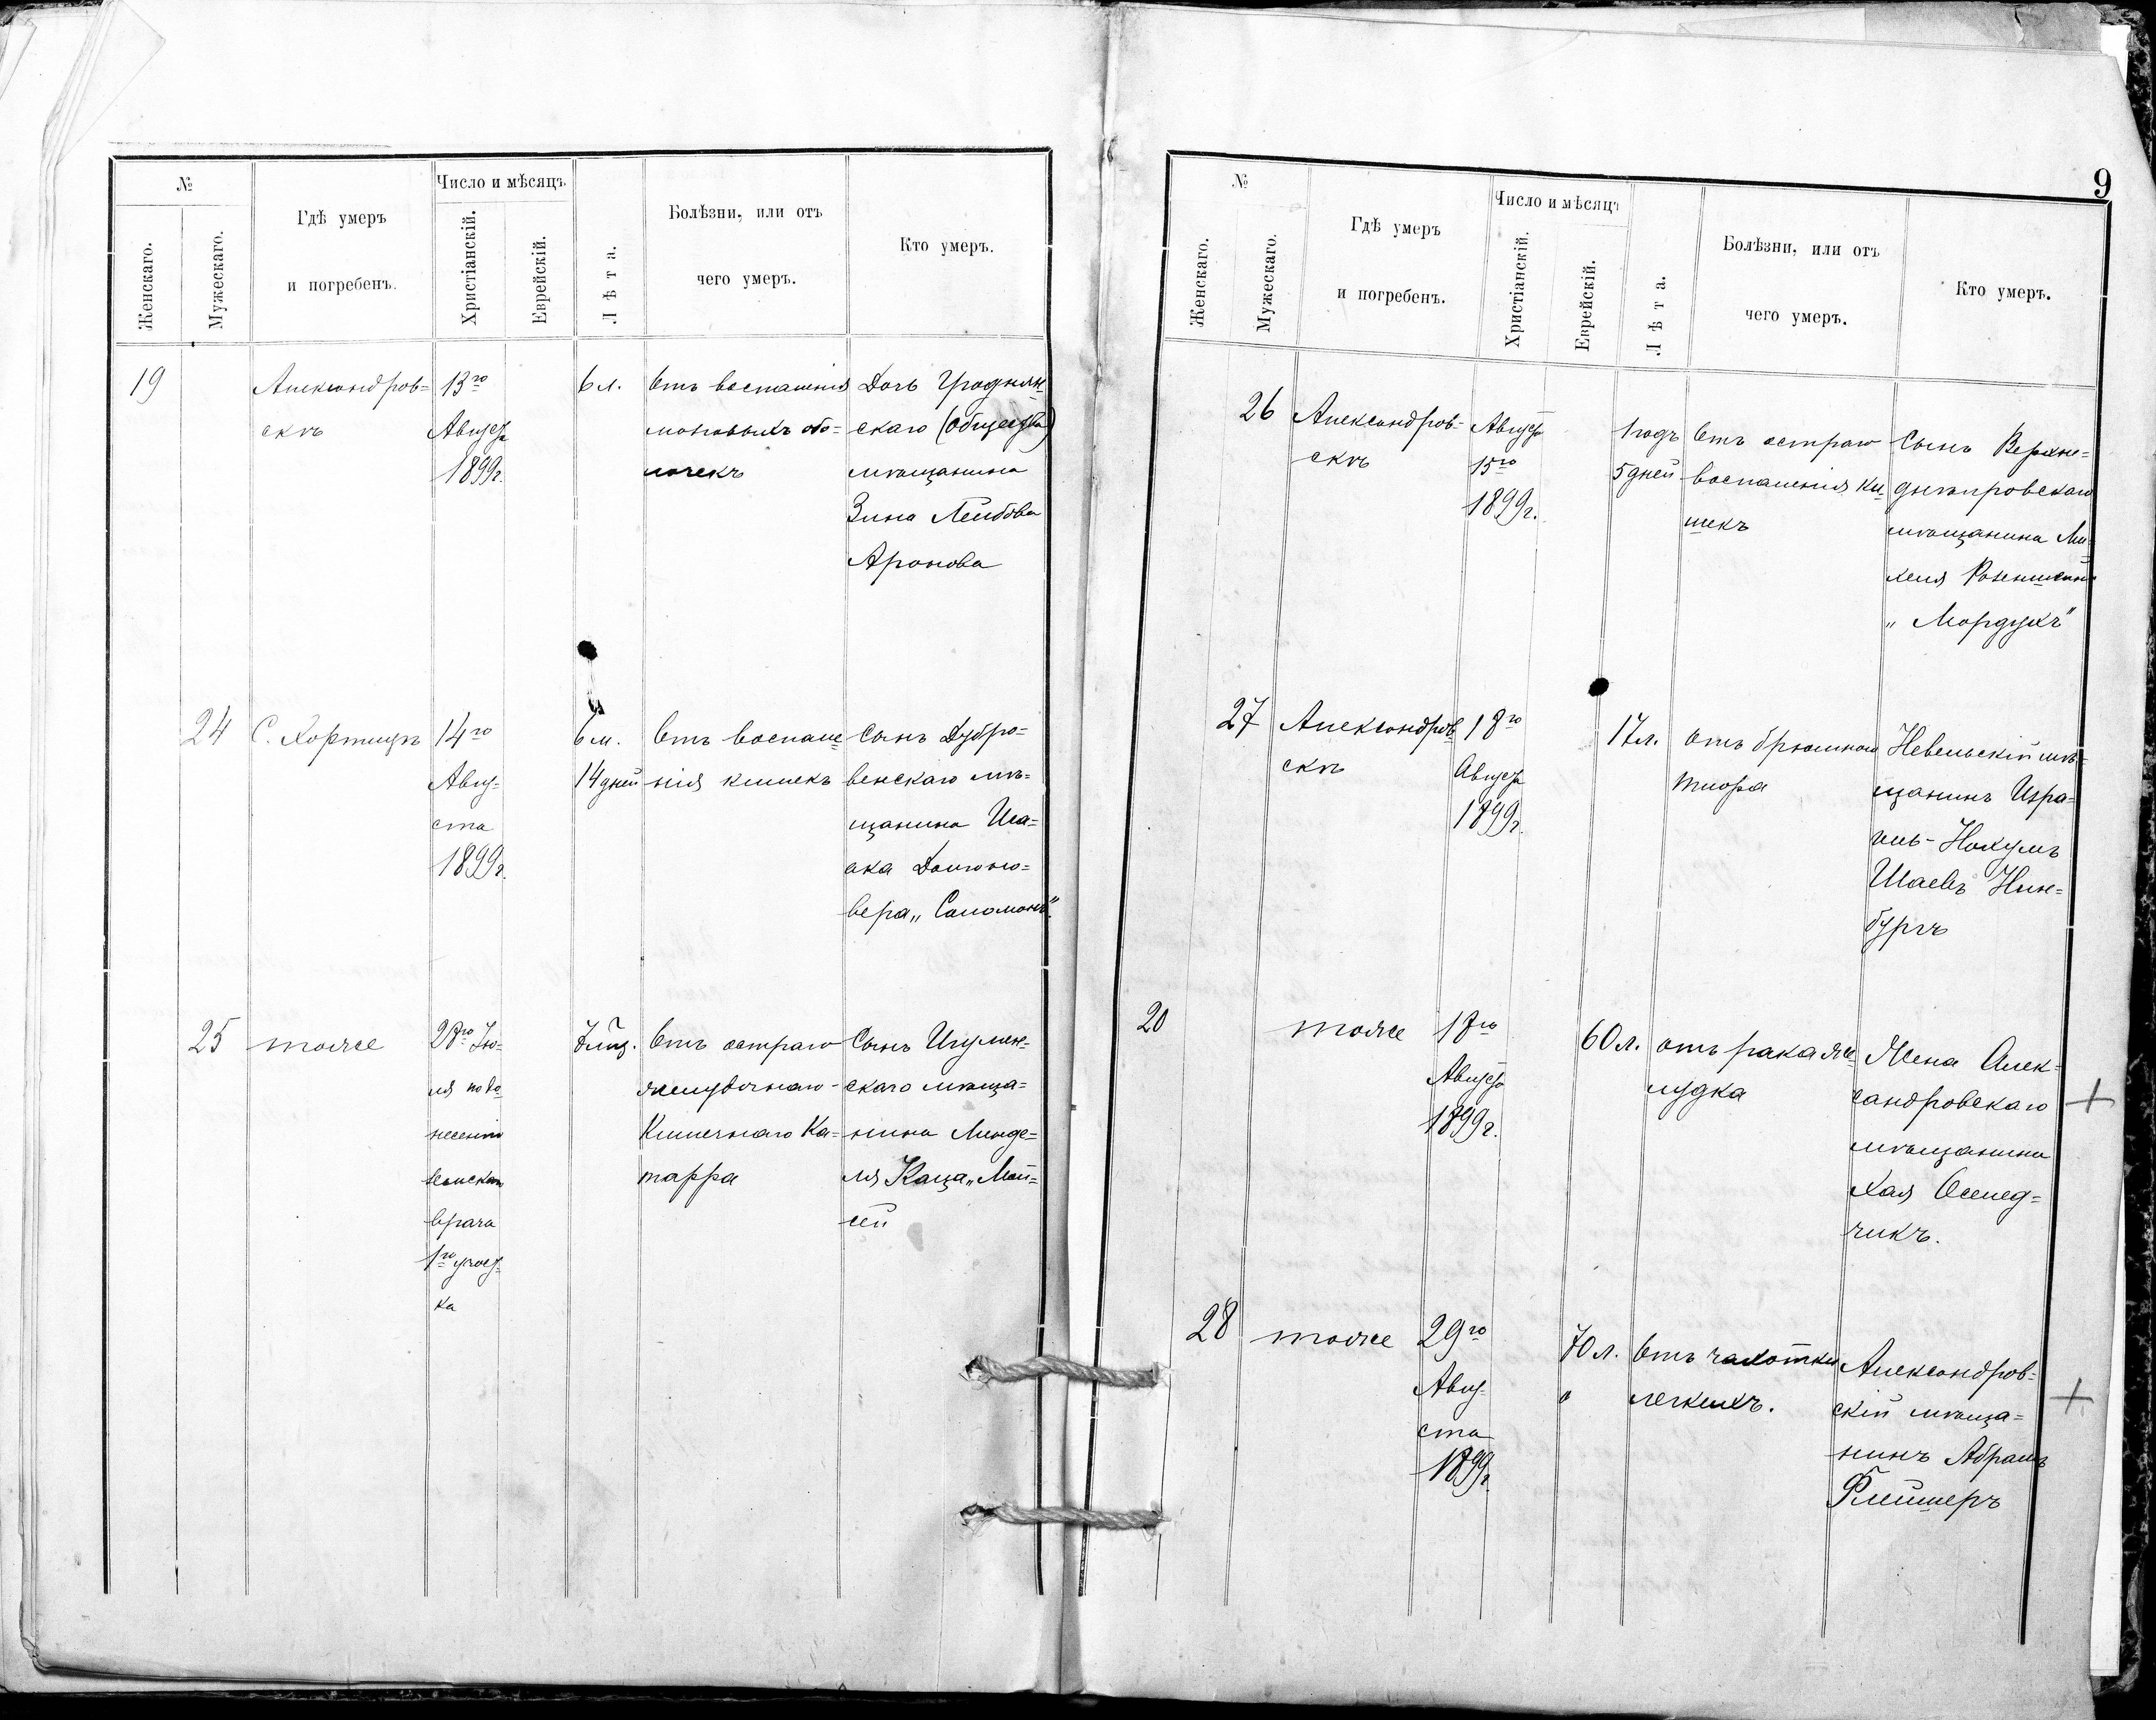 №
Женскаго.
Мужескаго.
Гдѣ умеръ
и погребенъ.
Число и мѣсяцъ
Христіанскій.
Еврейскій.
Лѣта.
Болѣзни, или отъ
чего умеръ.
Кто умеръ.
19
Александров=
скъ
13го
Августа
1899г.
6 л.
Отъ воспаленія
мозговыхъ обо=
лочекъ
Дочь Гроднян=
скаго (общества)
мѣщанина
Зина Лейбова
Аронова
24
С. Хортицъ
14го
Авгу=
ста
1899г.
6 м.
14 дней
Отъ воспале=
нія кишекъ
Сынъ Дубро=
венскаго мѣ=
щанина Иса=
ака
вера „Соломонъ"
25
тоже
28го Iю=
ля по до=
несенію
земскаго
врача
1го участ=
ка
7 мѣс.
Отъ остраго
желудочнаго-
Кишечнаго Ка=
тарра
Сынъ Игумен=
скаго мѣща=
нина Менде=
ля Каца „Мои=
сей
9
№
Женскаго.
Мужескаго.
Гдѣ умеръ
и погребенъ.
Число и мѣсяцъ
Христіанскій.
Еврейскій.
Лѣта.
Болѣзни, или отъ
чего умеръ.
Кто умеръ.
26
Александров=
скъ
Августа
15го
1899г.
1 годъ
5 дней
Отъ остраго
воспаленія ки=
шекъ
Сынъ Верхне=
днѣпровскаго
мѣщанина Ми=
хеля
„Мордухъ"
27
Александров=
скъ
18го
Августа
1899г.
17 л.
отъ брюшного
тифа
Невельскій мѣ=
щанинъ Изра=
иль-Нохумъ
Шаевъ Гин=
бургъ
20
тоже
18го
Августа
1899г.
60 л.
отъ рака же=
лудка
Жена Алек=
сандровскаго
мѣщанина
Хая Ослед=
чикъ.
28
тоже
29го
Авгу=
ста
1899г.
70 л.
Отъ чахотки
легкихъ.
Александров=
скій мѣща=
нинъ Абрамъ
Флейшеръ